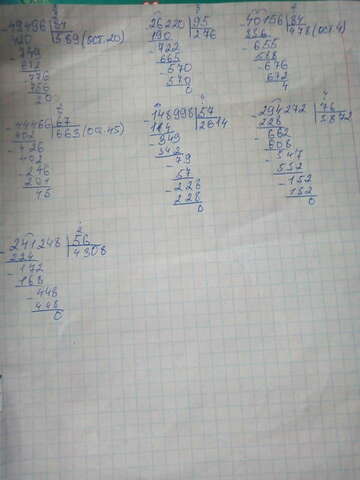 -49496 | 84
420 | 589 (ост. 20)
-749
672
-776
756
20
-26220 | 95
190 | 276
-722
665
-570
570
0
-40156 | 84
336 | 478 (ост 4)
-655
588
-676
672
4
-44466 | 67
402 | 663 (ост. 45)
-426
402
-246
201
45
-148998 | 57
114 | 2614
-349
342
-79
57
-228
228
0
-294272 | 76
228 | 3872
-662
608
-547
532
-152
152
0
-241248 | 56
224 | 4308
-172
168
-448
448
0